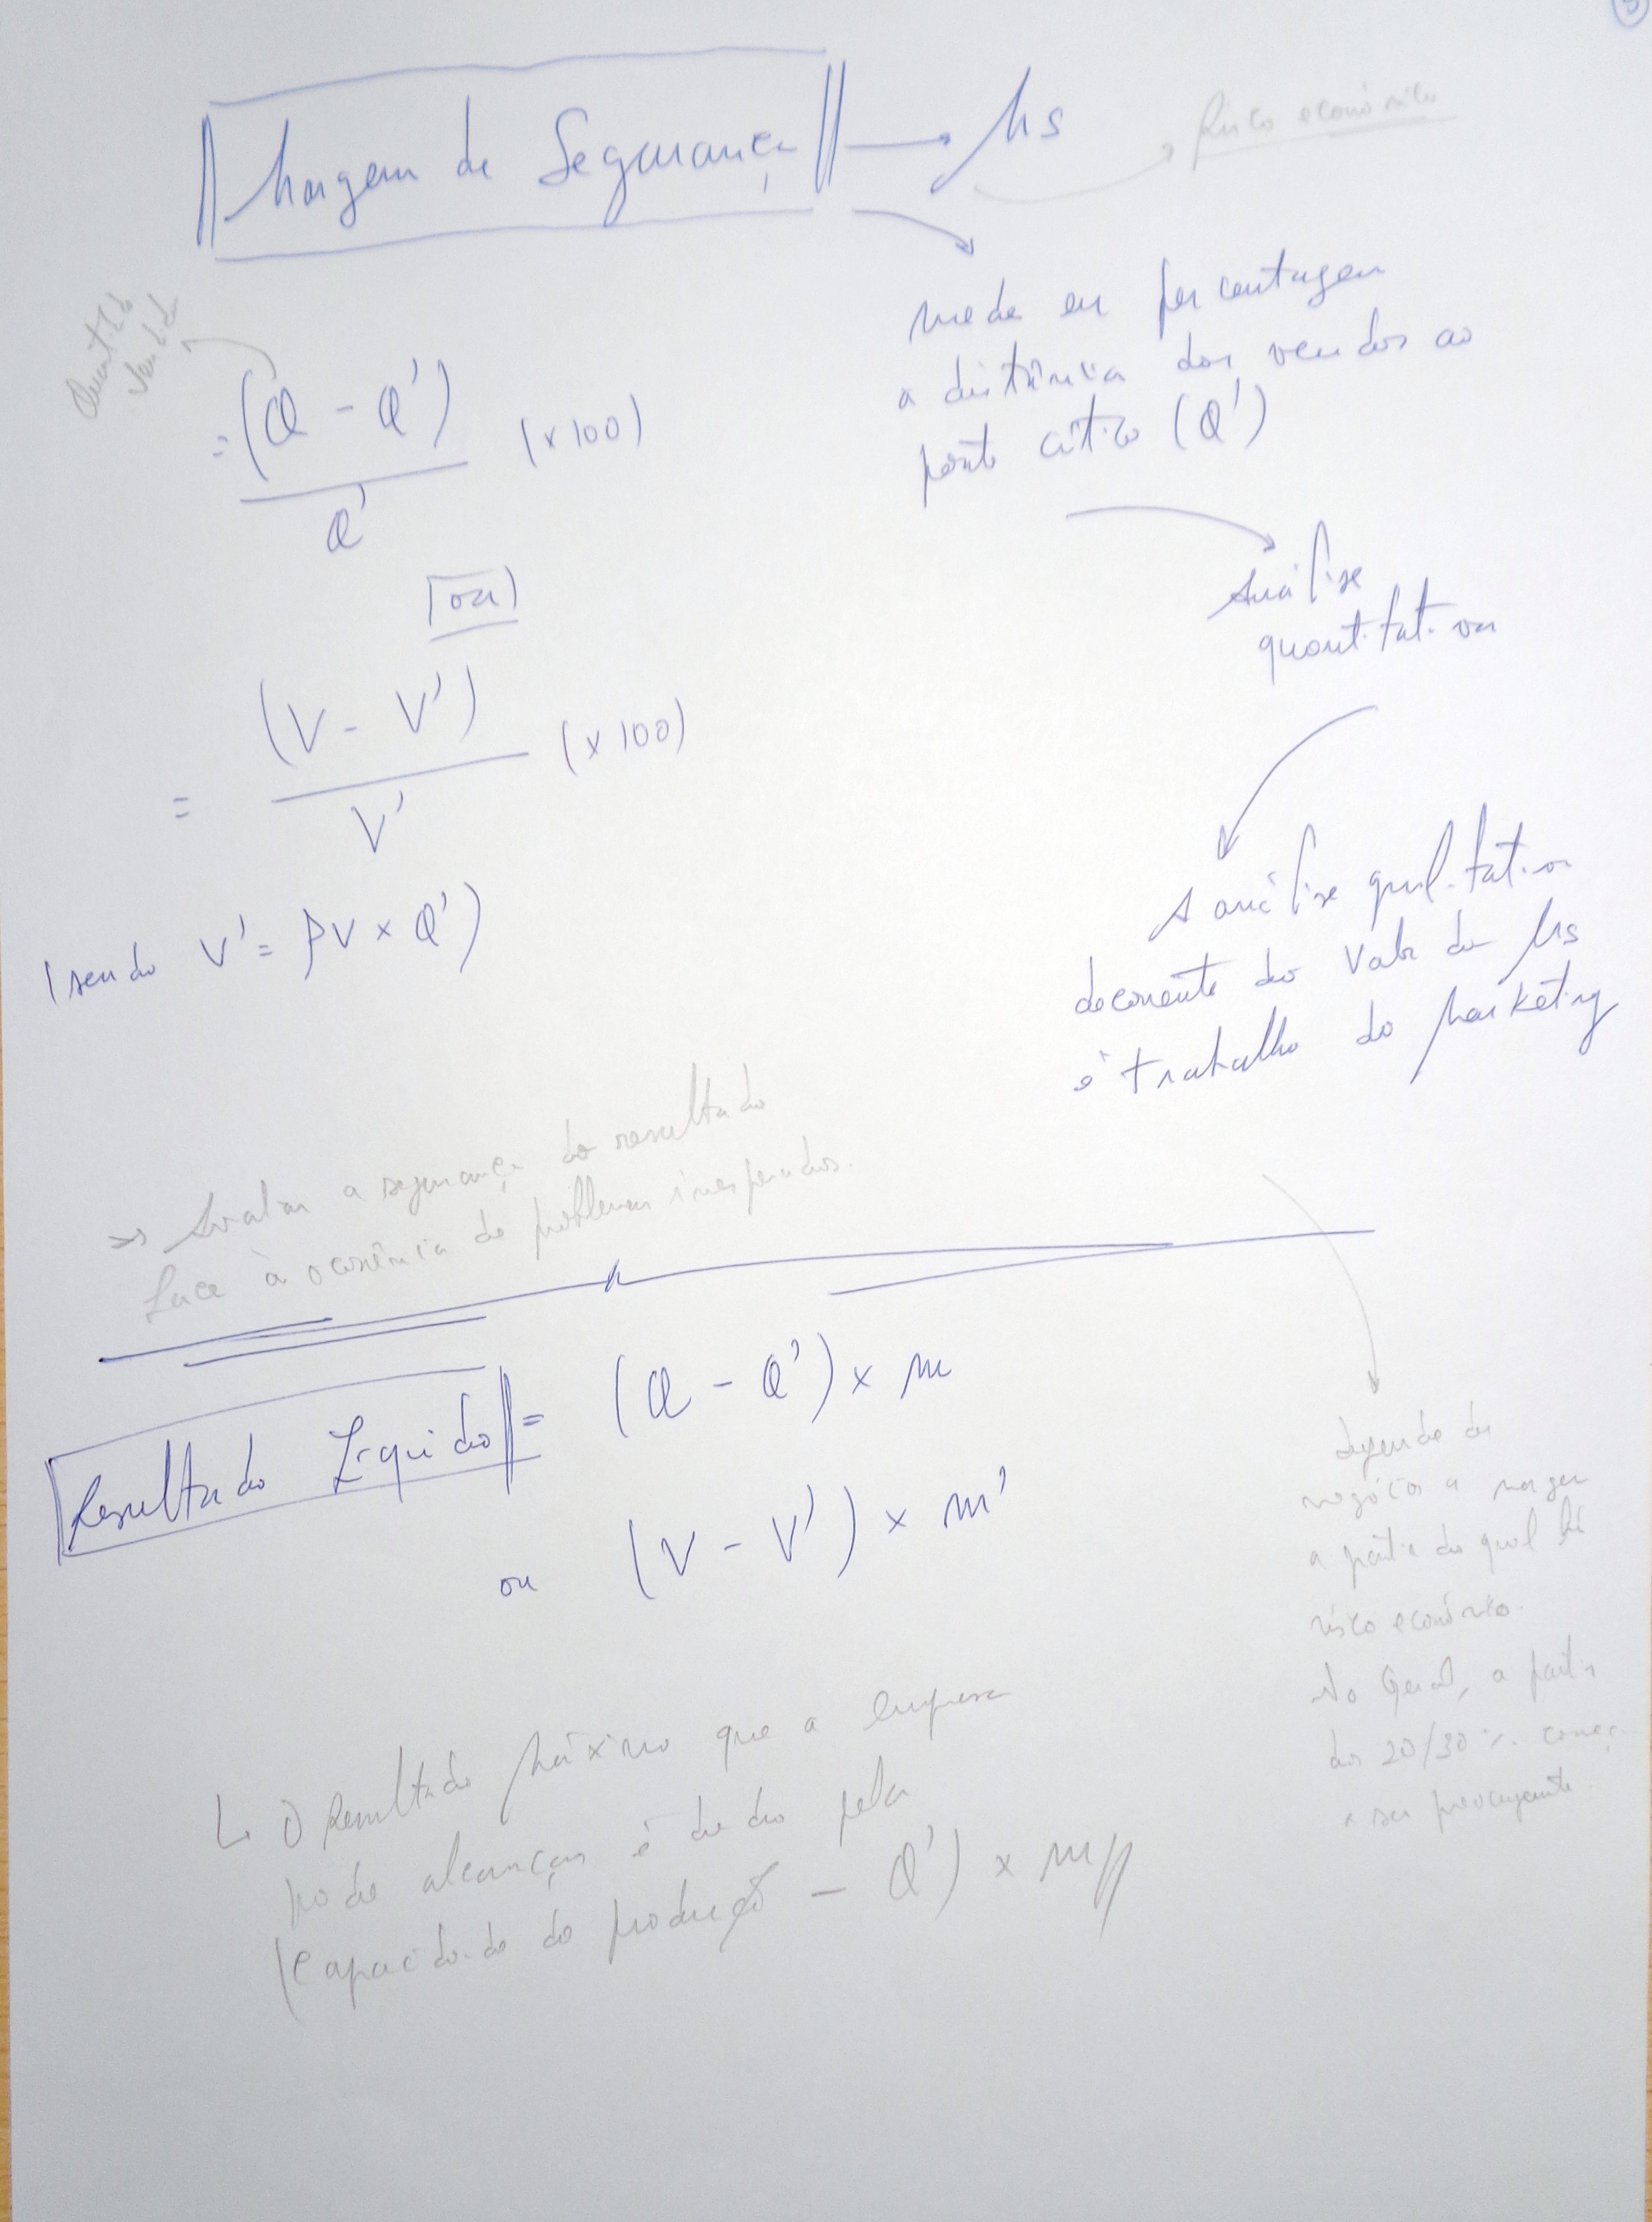 Margem de Segurança → Ms
Risco económico
mede em percentagem
a distância das vendas ao
ponto crítico (Q')
Quantidade
Vendida
= (Q - Q') (x100)
Q'
ou
(V - V') (x100)
=
V'
(sendo V' = PV x Q')
Análise
quantitativa
A análise qualitativa
decorrente do Valor da Ms
é trabalho do Marketing
→ Avaliar a segurança do resultado
face à ocorrência de problemas inesperados.
Resultado Líquido = (Q - Q') x m
ou (V - V') x m'
depende do
negócio a margem
a partir da qual há
risco económico.
No Geral, a partir
dos 20/30% começa
a ser preocupante.
↳ O Resultado Máximo que a empresa
pode alcançar é dado pela
(Capacidade de produção - Q') x m//